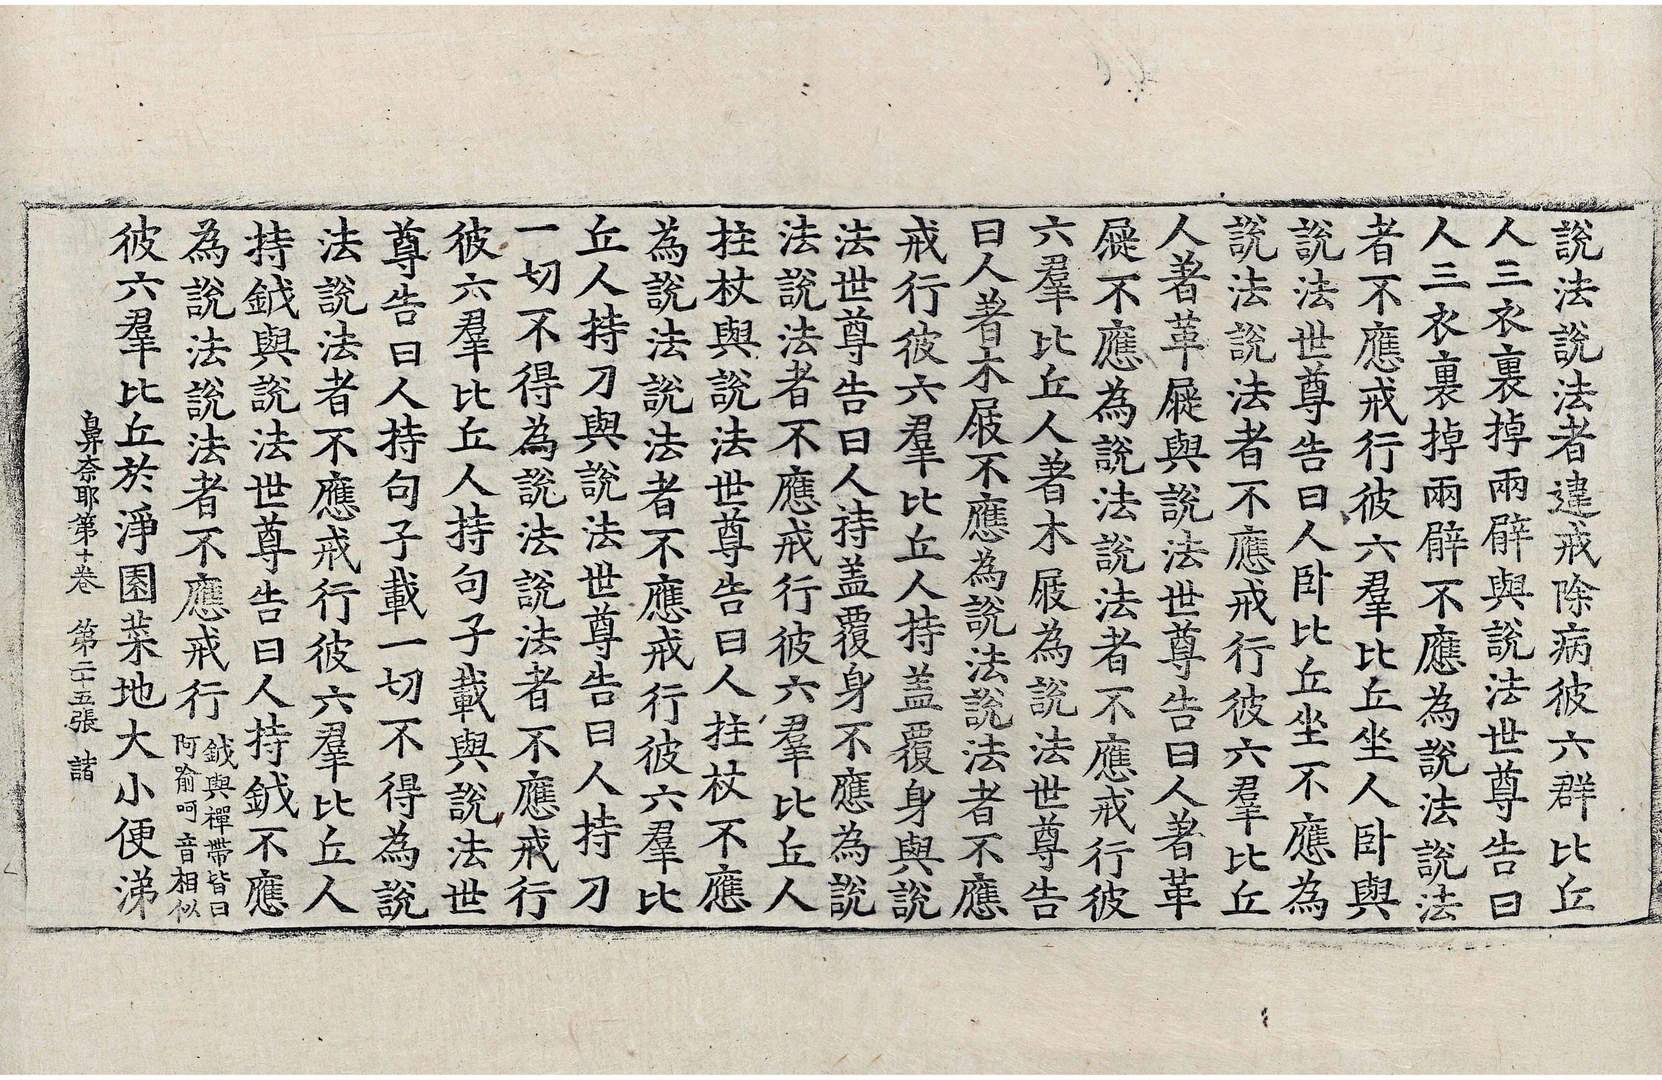 說法說法者違戒除病彼六群比丘
人三衣裏掉兩臂與說法世尊告曰
人三衣裏掉兩臂不應為說法說法
者不應戒行彼六羣比丘坐人卧與
說法世尊告曰人卧比丘坐不應為
說法說法者不應戒行彼六羣比丘
人著革屣與說法世尊告曰人著革
屣不應為說法說法者不應戒行彼
六羣比丘人著木屐為說法世尊告
曰人著木屐不應為說法說法者不應
戒行彼六羣比丘人持盖覆身與說
法世尊告曰人持盖覆身不應為說
法說法者不應戒行彼六羣比丘人
拄杖與說法世尊告曰人拄杖不應
為說法說法者不應戒行彼六羣比
丘人持刀與說法世尊告曰人持刀
一切不得為說法說法者不應戒行
彼六羣比丘人持句子戴與說法世
尊告曰人持句子載一切不得為說
法說法者不應戒行彼六羣比丘人
持鉞與說法世尊告曰人持鉞不應
為說法說法者不應戒行
鉞與禪帶皆曰
阿俞呵音相似
彼六羣比丘於淨園菜地大小便涕
鼻奈耶第十卷 第二十五張 諸